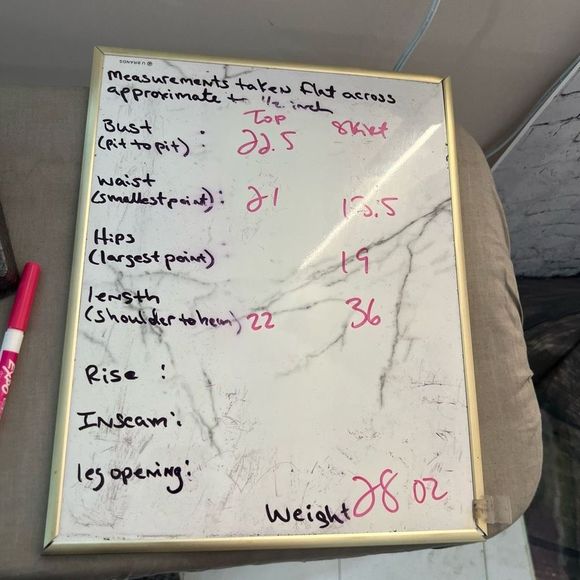 U BRANDS
Measurements taken flat across
approximate to 1/2 inch
Top Skirt
Bust
(pit to pit) : 22.5
waist
(smallest point) : 21
Hips
(largest point) 19
length
(shoulder to hem) 22 36
Rise :
Inseam :
leg opening :
Weight 28 oz
EXPO